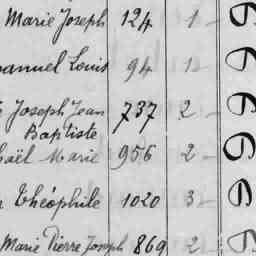 Marie Joseph 124 1
Louis 94 1
Joseph Jean 737 2
Baptiste
Marie 956 2
Théophile 1020 3
Marie Pierre Joseph 869 2